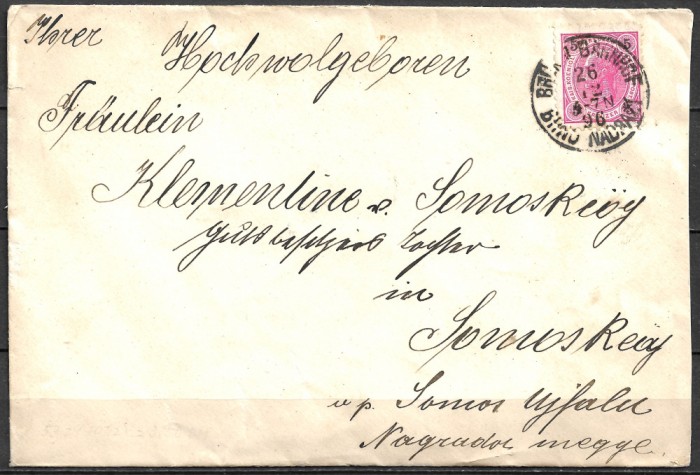 Ihrer
Hochwolgeboren
Fräulein
Klementine v. Somosköÿ
Gutsbesitzers Tochter
in
Somosköÿ
u. p. Somos Ujfalu
Nagrador megye.
BAHNHOF
26
12
5-7N
96
BRNO NÁDRAŽÍ
5